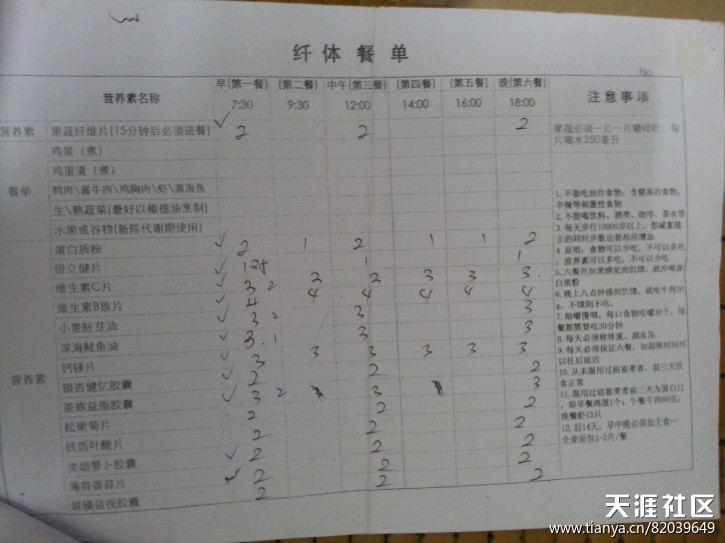 纤体餐单
No
营养素名称 早(第一餐) (第二餐) 中午(第三餐) (第四餐) (第五餐) 晚(第六餐) 注意事项
7:30 9:30 12:00 14:00 16:00 18:00
营养素 果蔬纤维片(15分钟后必须进餐) 2 2 2 果蔬必须一片一片嚼碎吃:每
片喝水250毫升
鸡蛋(煮)
鸡蛋清(煮)
餐单 鸭肉\酱牛肉\鸡胸肉\虾\蒸海鱼
生\熟蔬菜(最好以橄榄油烹制)
水果或谷物(新陈代谢期使用)
营养素
蛋白质粉 2 1 2 1 1 2
倍立健片 1 1
维生素C片 3 2 2 2 3 3 3
维生素B族片 4 4 4 4 4 4
小麦胚芽油 3 2 3 3
深海鲑鱼油 3 1 3 3
钙镁片 3 3 3 3 3 3
银杏健忆胶囊 2 2 2
茶族益脂胶囊 3 2 3 3
松果菊片 2 2 2
铁质叶酸片 2 2 2
类胡萝卜胶囊 2 2 2
薄荷香蒜片 2 2 2
2
1.不能吃油炸食物;含糖高的食物;
辛辣等刺激性食物
2.不能喝饮料、酒类、咖啡、茶水等
3.每天步行10000步以上,想减重越
多的同时步数也要相应增加
4.原则:食物可以少吃,不可以多吃
;营养素可以多吃,不可以少吃
5.六餐外如果感觉到饥饿,就冲喝蛋
白质粉
6.晚上八点钟感到饥饿,就吃牛肉30
g,不饿则不吃。
7.细嚼慢咽,每口食物咀嚼30下,每
餐都需要吃30分钟
8.每天必须称体重、测血压
9.每天必须保证六餐,如起晚时间可
以往后延迟
10.从未服用过纽崔莱者,前三天饮
食正常
11.服用过纽崔莱者前三天为蛋白日
,即早餐鸡蛋1个;午餐牛肉60克;
晚餐虾13只
12.后14天,早中晚必须加主食—
全麦面包1-2片/餐
天涯社区
www.tianya.cn/82039649